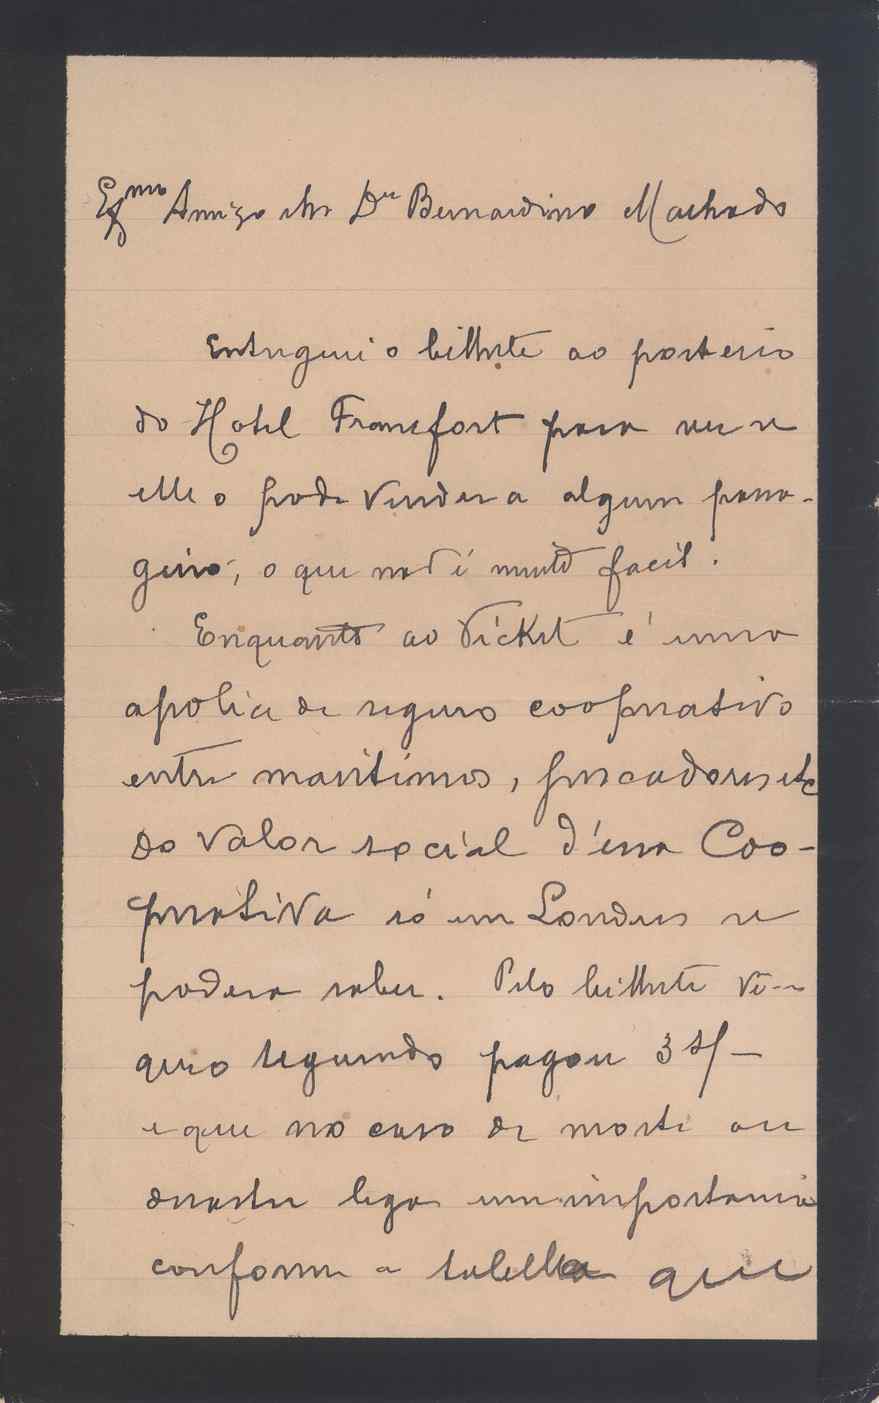 Exmo Amigo Snr Dr Bernardino Machado
Entreguei o bilhete ao porteiro
do Hotel Francfort para ver se
elle o pode vender a algum passa-
geiro, o que não é muito facil.
Enquanto ao Ticket é uma
apolice de seguro cooperativo
entre maritimos, pescadores etc
do valor social d'essa Coo-
perativa só em Londres se
podera saber. Pelo bilhete ve-
que o segurado pagou 3 s/-
e que no caso de morte ou
desastre lega um importancia
conforme a tabella que